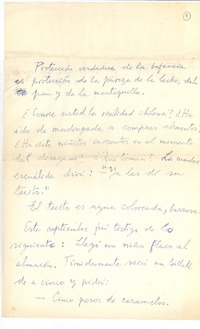 1
Protección verdadera de la infancia:
es protección de la pureza de la leche, del
pan y de la mantequilla.
¿Conoce usted la realidad chilena? ¿Ha
ido de madrugada a comprar alimentos?
¿Ha visto niñitos inocentes en el momento
del desayuno? La madre
escuálida dirá: "Ya les dí su
tecito."
El tecito es agua coloreada,
Este septiembre fui testigo de lo
siguiente: Llegó un niño flaco al
almacén. Tímidamente sacó un billete
de a cinco y pidió:
— Cinco pesos de caramelos.